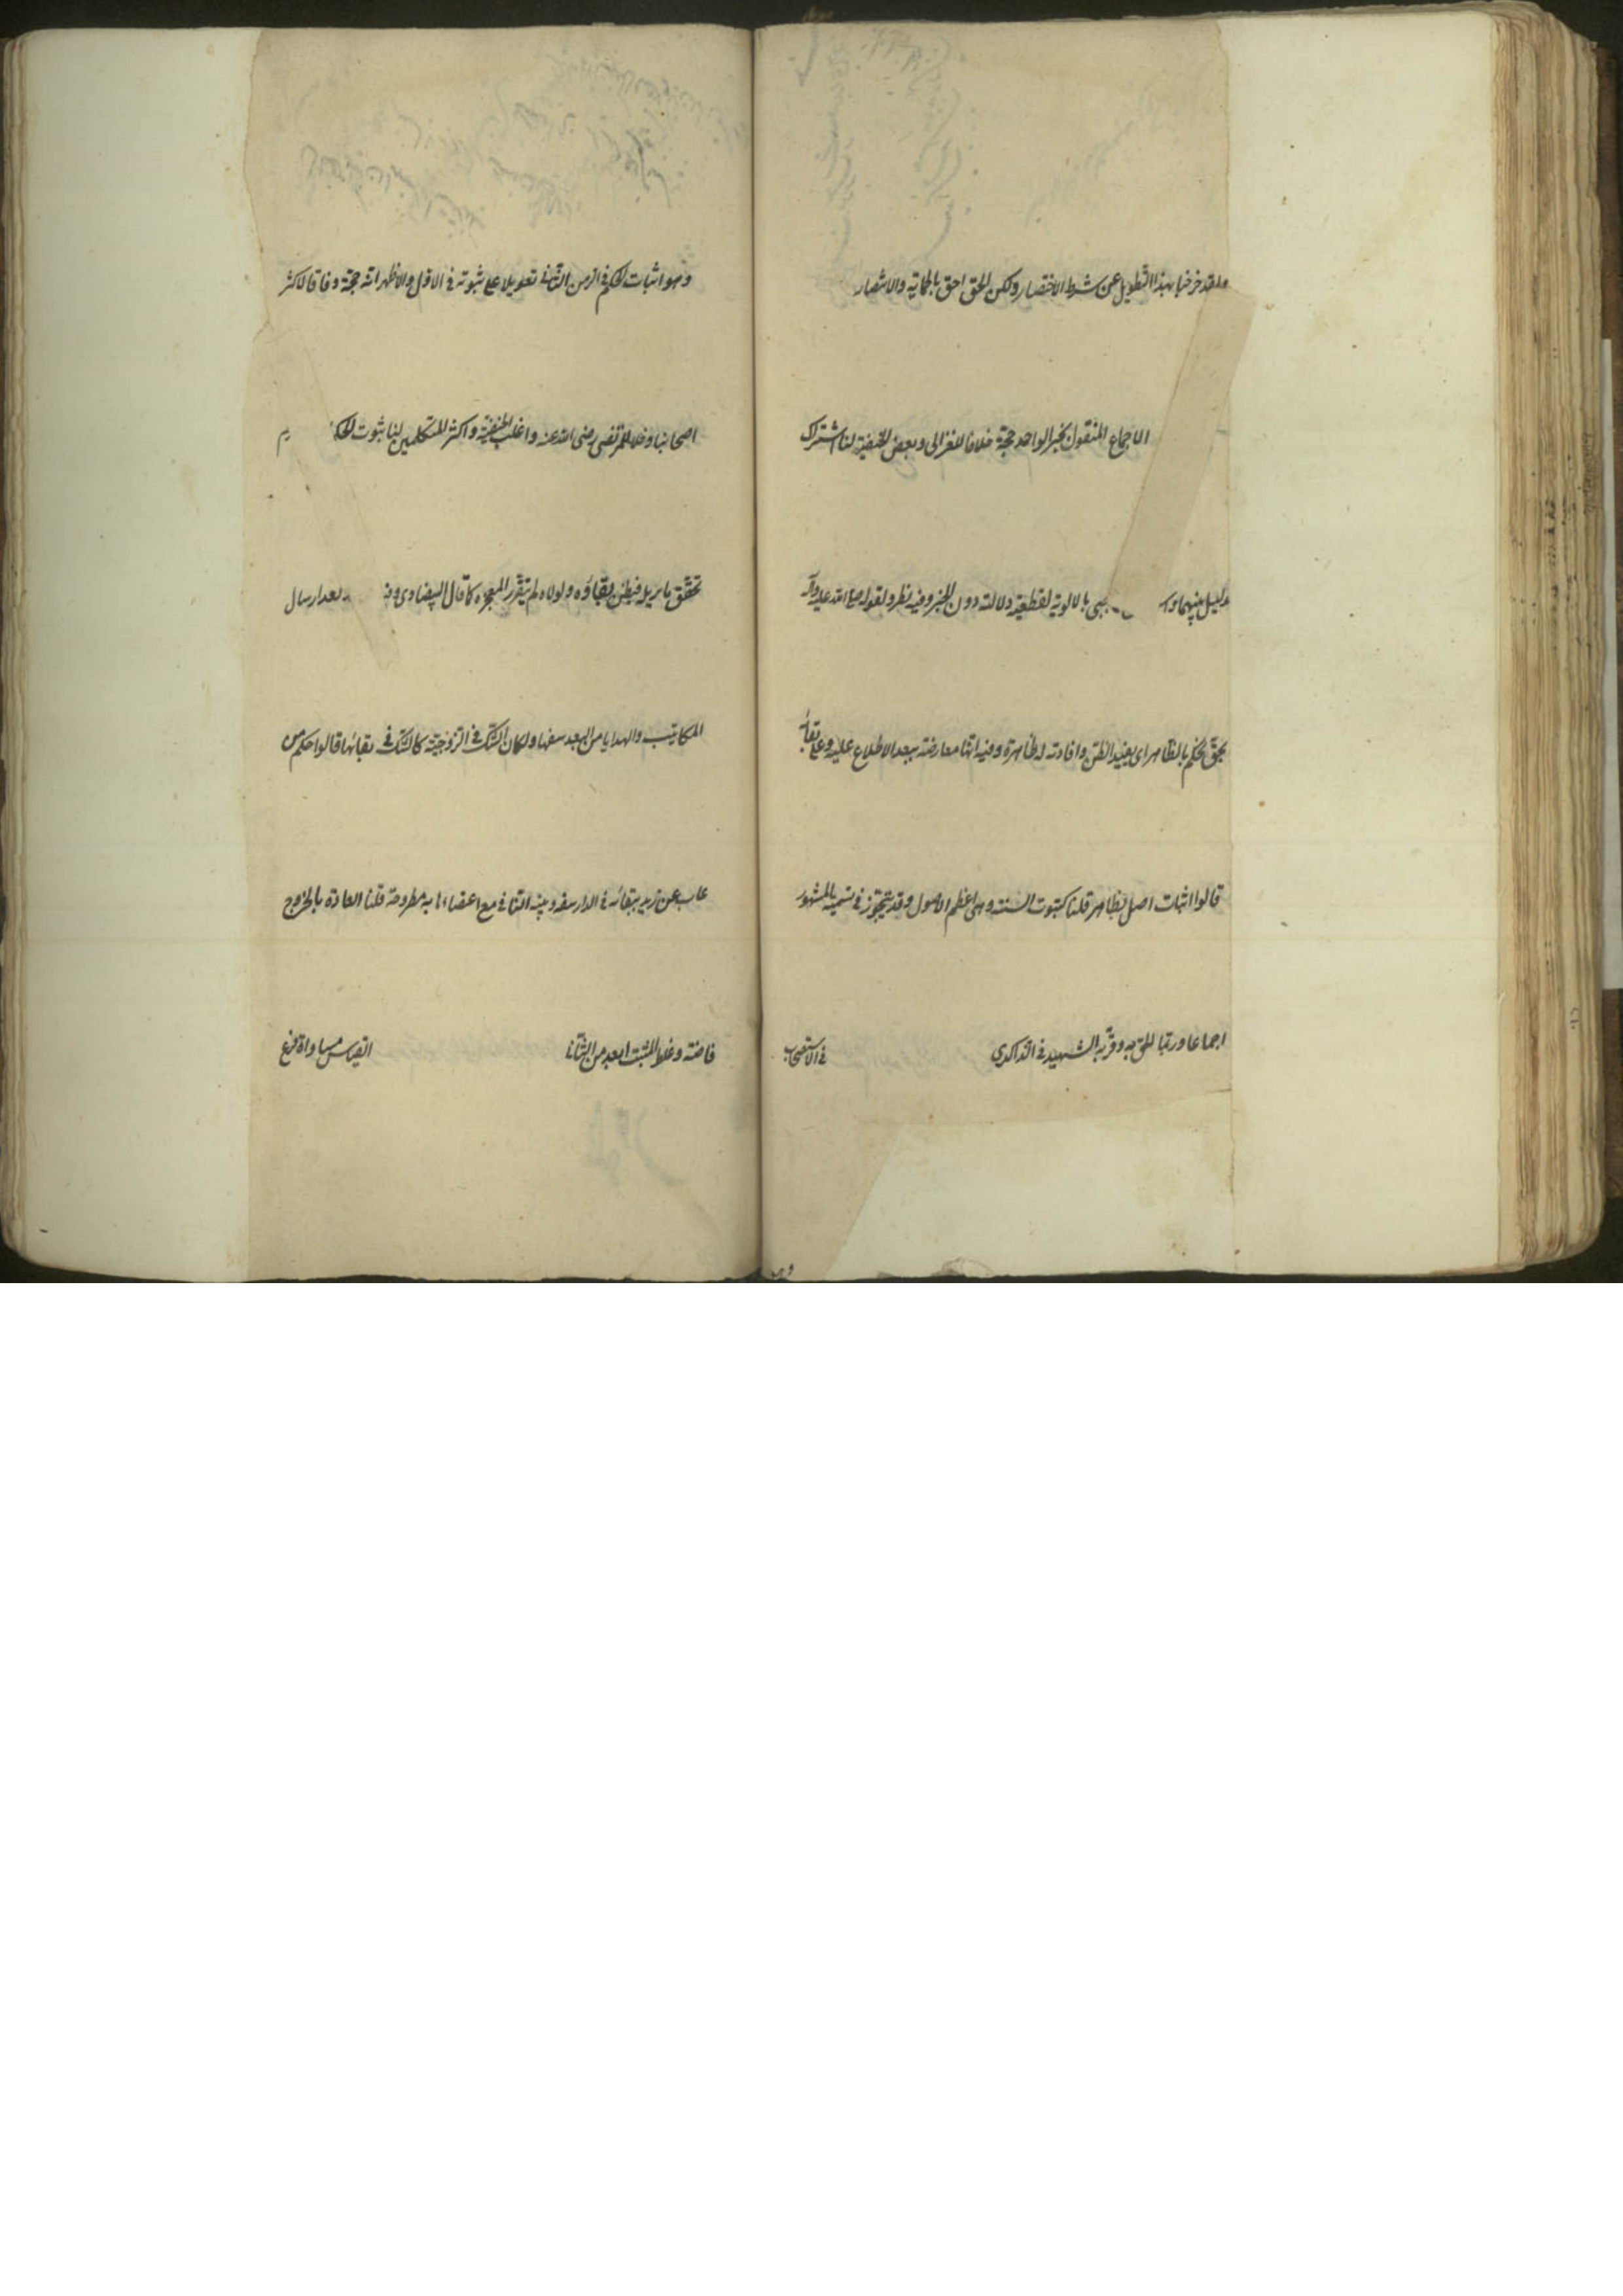 ولقد خرجنا بهذا التطويل عن شرط الاختصار ولكن الحق احق بالحماية والانتصار
الاجماع المنقول بخبر الواحد حجة خلافا للغزالى وبعض الحنفية لنا اشتراك
دليل بينهما وا هى بالالوية لقطعية دلالته دون الخبر وفيه نظر ولقوله صلى الله عليه وآله
نحكم بالظاهر اى يفيد الظن وافادته له ظاهرة وفيه انها معارضة ببعد الاطلاع عليه وعلى بقائه
قالوا اثبات اصل بظاهر قلنا كثبوت السنة وهى اعظم الاصول وقد يتجوز فى تسمية المشهور
اجماعا وربما الحق به وقربه الشهيد فى الذكرى فى الاستصحاب
وهو اثبات الحكم فى الزمن الثانى تعويلا على ثبوته فى الاول والاظهر انه حجة وفاقا لاكثر
اصحابنا وخلافا للمرتضى رضى الله عنه واغلب الحنفية واكثر المتكلمين لنا ثبوت الحكم
تحقق ما يزيله فيظن بقاؤه ولولاه لم يتقرر المعجزه كما قال البيضاوى ولا بعد ارسال
المكاتيب والهدايا من البعد سفها ولكان الشك فى الزوجية كالشك فى بقائها قالوا حكم من
غاب عن زيد ببقائه فى الدار سفه وبينة النافى مع اعتضادها به مطروحة قلنا العادة بالخروج
قاضية وغلط المثبت ابعد من النافى القياس مساواة فرع